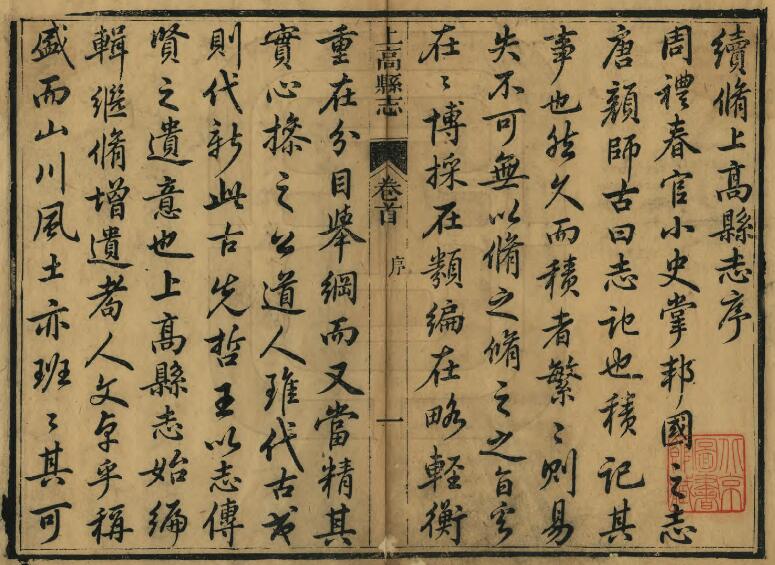 續脩上髙縣志序
周禮春官小史掌邦國之志
唐顔師古曰志記也積記其
事也然久而積者繁〻則易
失不可無以脩之脩之之旨
在〻博採在𩔖編在略輕衡
上高縣志
卷首
序
一
重在分目舉綱而又當精其
實心操之公道人雖代古
則代新此古先哲王以志傳
賢之遺意也上髙縣志始編
輯繼脩增遺耉人文卓乎稱
盛而山川風土亦班〻其可